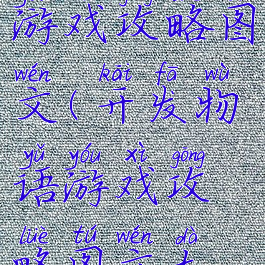 游戏攻略图
wén kāi fā wù
文(开发物
yǔ yóu xì gōng
语游戏攻
lüè tú wén dà
略图